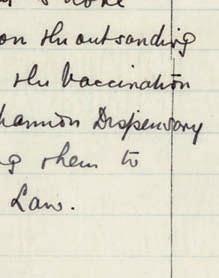 on the outsanding
the Vaccination
hannon Dispensary
ng them to
Law.